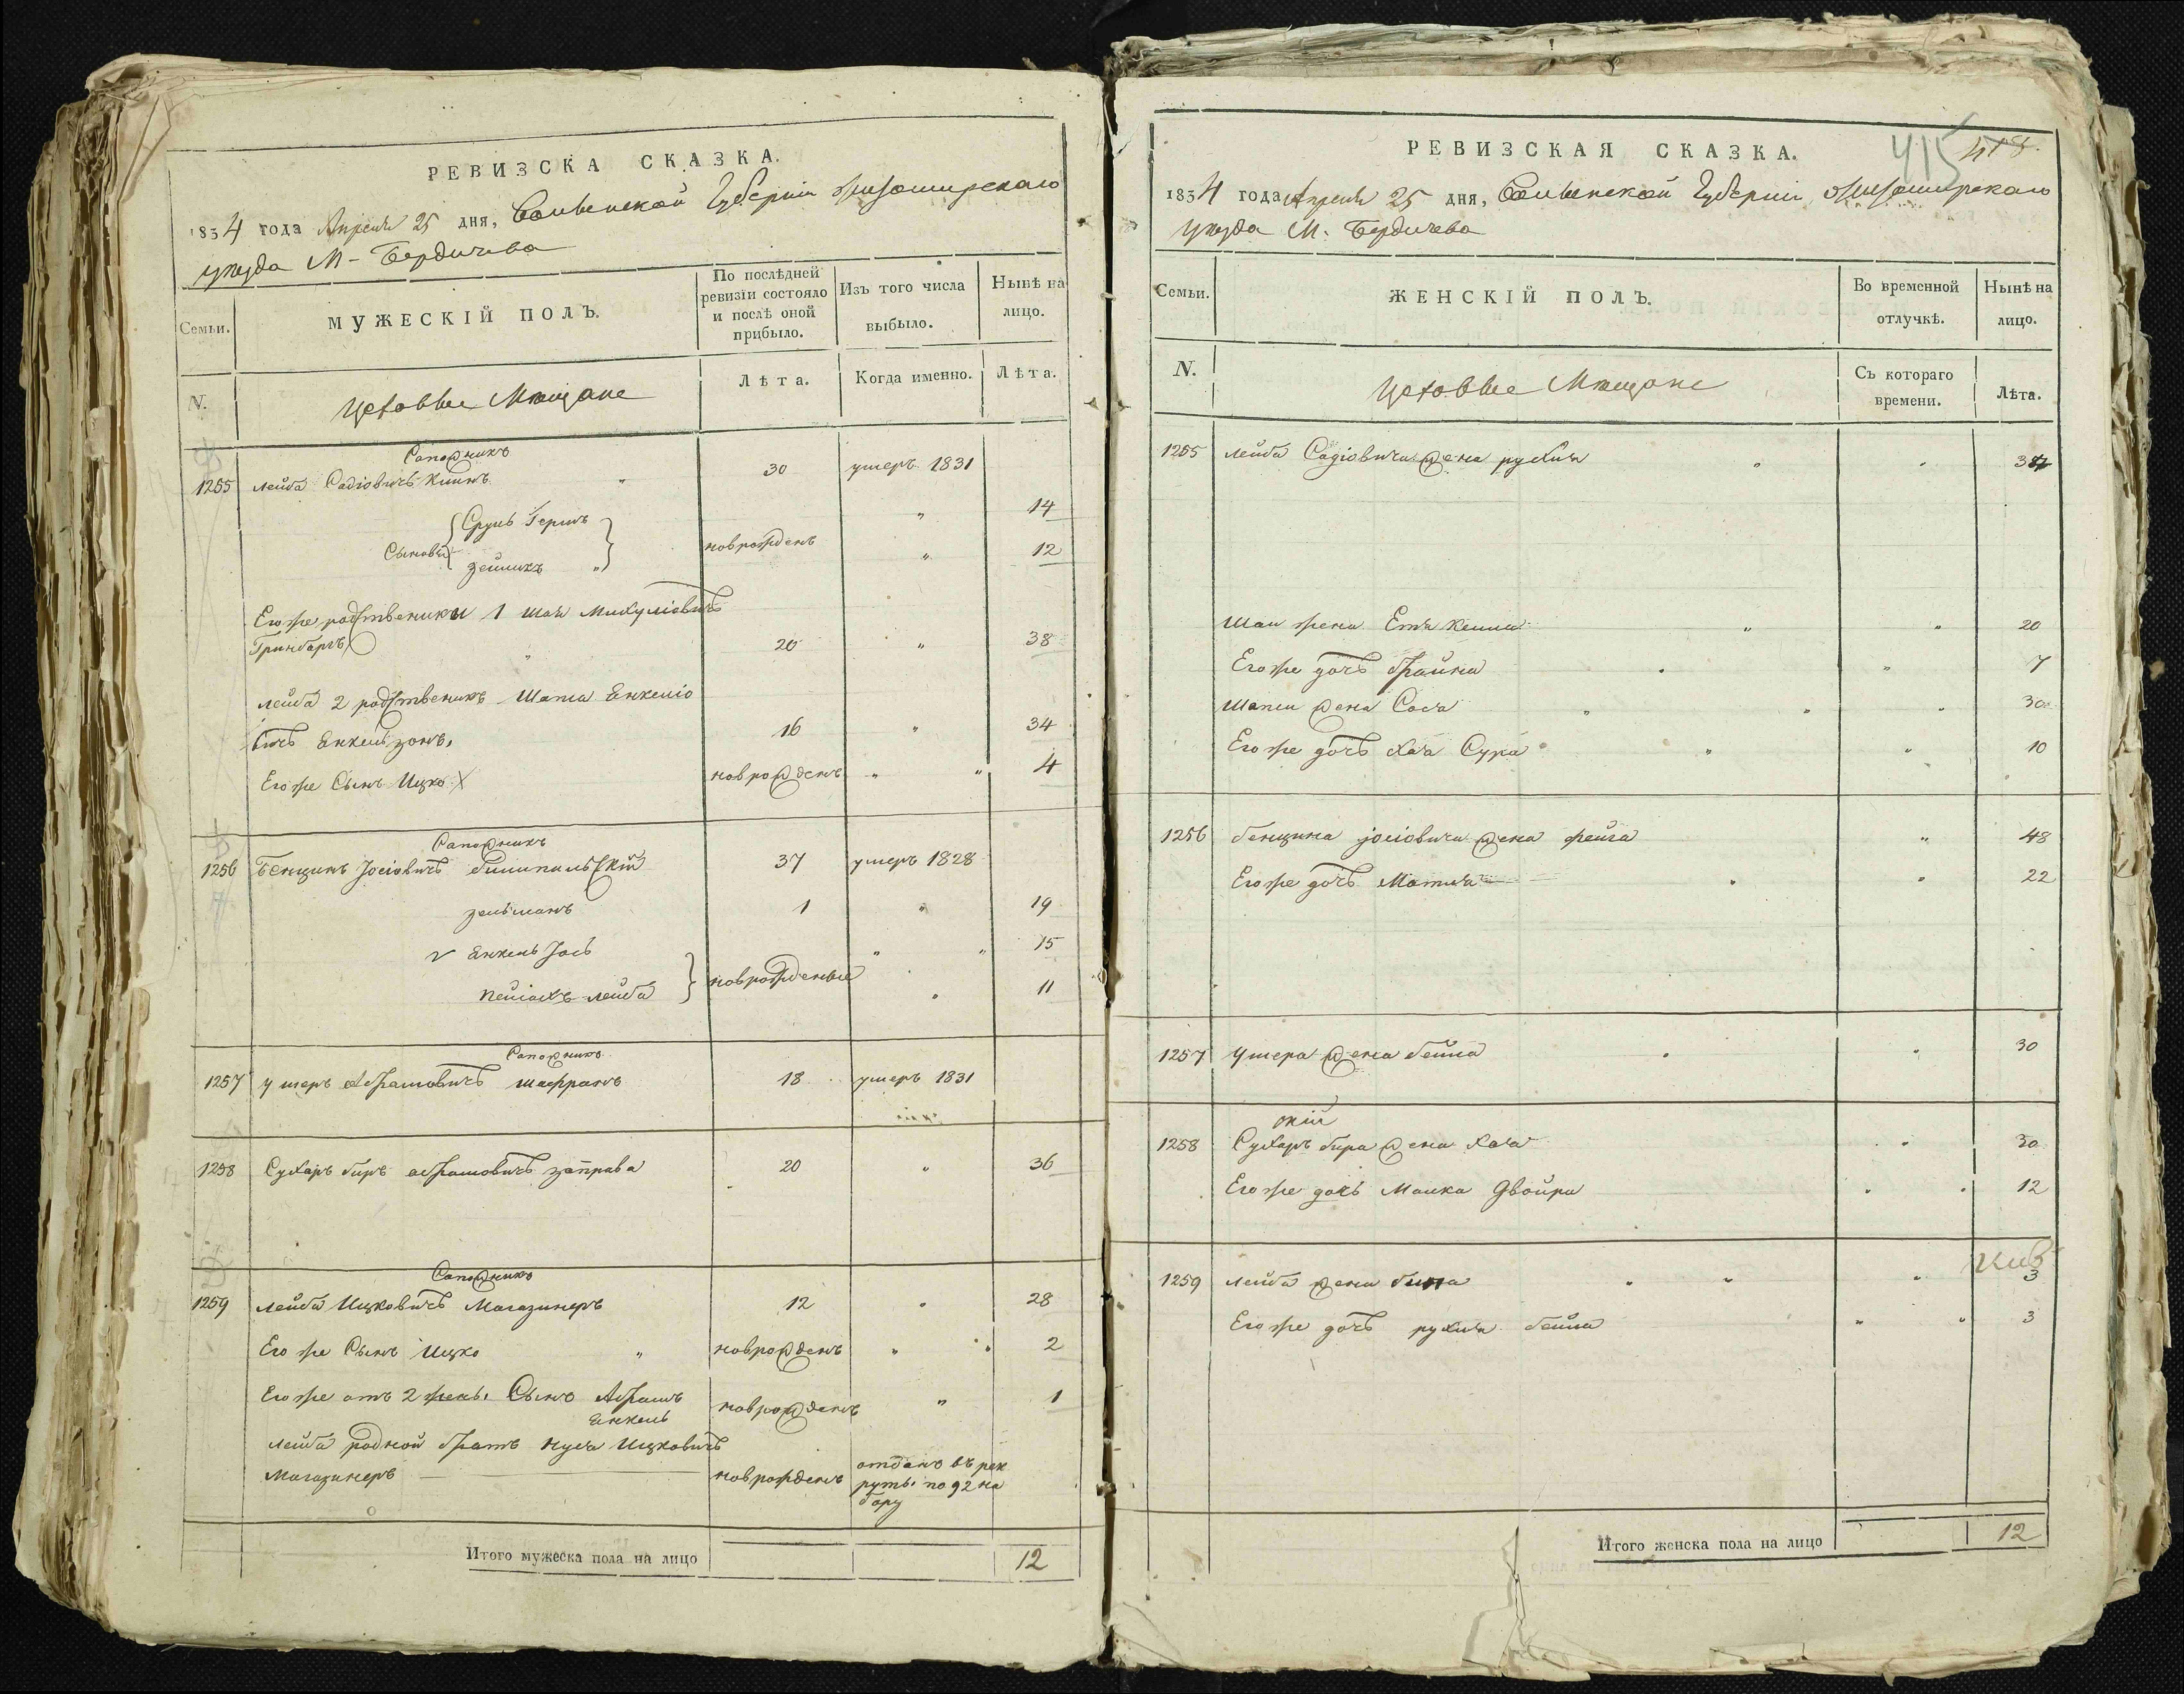 РЕВИЗСКА СКАЗКА.
1834 года Апреля 25 дня, Волынской Губерніи Житомирскаго
уезда М. Бердичева
Семьи.
МУЖЕСКІЙ ПОЛЪ.
По послѣдней ревизіи состояло и послѣ оной прибыло.
Изъ того числа выбыло.
Нынѣ на лицо.
N.
Цеховые Мещане
Лѣта.
Когда именно.
Лѣта.
Сапожникъ
1255 Лейба Садіовичъ 30 умеръ 1831
Сруль Гершъ " 14
Сыновья новрожденъ
Зейликъ " " 12
Его же родственики 1 Шая
Гринбергъ " 20 " 38
Лейба 2 родственикъ Шапса Енкеліо
вичъ Енкельзонъ 16 " 34
Его же Сынъ Ицко новрожденъ " " 4
Сапожникъ
1256 Бенционъ Іосіовичъ 37 умеръ 1828
Зельманъ 1 " 19
Енкель Іось " " 15
новрожденые
Пейсахъ Лейба " 11
Сапожникъ
1257 Ушеръ Абрамовичъ Шафранъ 18 умеръ 1831
1258 Сухаръ Биръ Абрамовичъ Заправа 20 " 36
Сапожникъ
1259 Лейба Ицковичъ Магазинеръ 12 " 28
Его же Сынъ Ицко " новрожденъ " " 2
Его же отъ 2 жены Сынъ Абрамъ новрожденъ " 1
Енкель
Лейба родной братъ Нуса Ицковичъ
Магазинеръ новрожденъ отданъ въ рек
руты по 92 на
бору
Итого мужеска пола на лицо 12
РЕВИЗСКАЯ СКАЗКА.
415 418.
1834 года Апреля 25 дня, Волынской Губерніи, Житомирскаго
уезда М. Бердичева
Семьи.
ЖЕНСКІЙ ПОЛЪ.
Во временной отлучкѣ.
Нынѣ на лицо.
N.
Цеховые Мещане
Съ котораго времени.
Лѣта.
1255 Лейба Садіовича жена Рухля " "
Шаи жена Етя Кейла " " 20
Его же дочь Фрайна " " 7
Шапси жена Сося " " " 30
Его же дочь Хая Сура " " " 10
1256 Бенциона Іосіовича жена Фейга " 48
Его же дочь Матля " " 22
1257 Ушера жена Бейла " " 30
1258 Сухаръ Бира жена Хая " 30
Его же дочь Малка Двойра " " 12
1259 Лейба жена " " " 3
Его же дочь Рухля Бейла " " 3
Итого женска пола на лицо 12